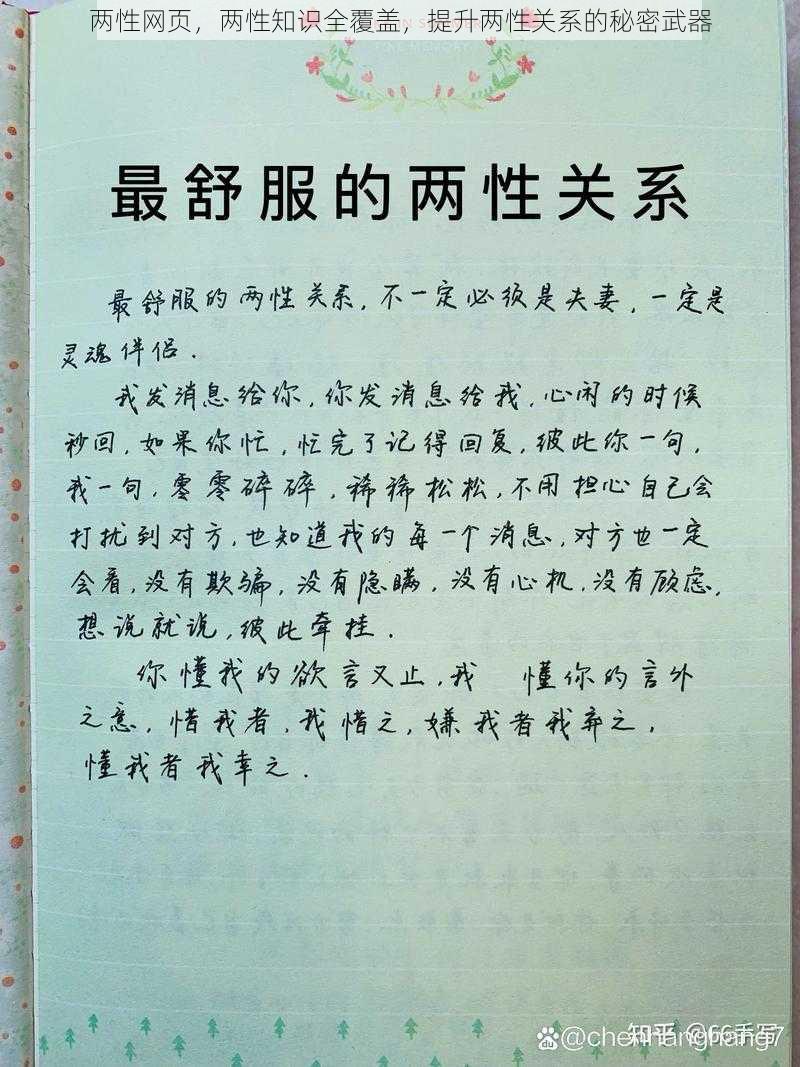 两性网页，两性知识全覆盖，提升两性关系的秘密武器
最舒服的两性关系
最舒服的两性关系，不一定必须是夫妻，一定是
灵魂伴侣．
我发消息给你，你发消息给我，心闲的时候
秒回，如果你忙，忙完了记得回复，彼此你一句，
我一句，零零碎碎，稀稀松松，不用担心自己会
打扰到对方，也知道我的每一个消息，对方也一定
会看，没有欺骗，没有隐瞒，没有心机，没有顾虑，
想说就说，彼此牵挂．
你懂我的欲言又止，我 懂你的言外
之意，惜我者，我惜之，嫌我者我弃之，
懂我者我幸之．
知乎 @66手写
@chenhanghang7